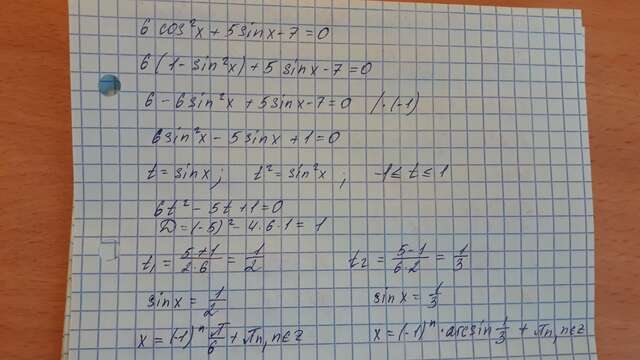 6 cos²x + 5 sinx - 7 = 0
6 (1 - sin²x) + 5 sinx - 7 = 0
6 - 6 sin²x + 5 sinx - 7 = 0 / · (-1)
6 sin²x - 5 sinx + 1 = 0
t = sinx ; t² = sin²x ; -1 ≤ t ≤ 1
6t² - 5t + 1 = 0
D = (-5)² - 4·6·1 = 1
t₁ = (5+1)/(2·6) = 1/2 t₂ = (5-1)/(6·2) = 1/3
sinx = 1/2 sinx = 1/3
x = (-1)ⁿ π/6 + πn, n∈z x = (-1)ⁿ · arcsin 1/3 + πn, n∈z